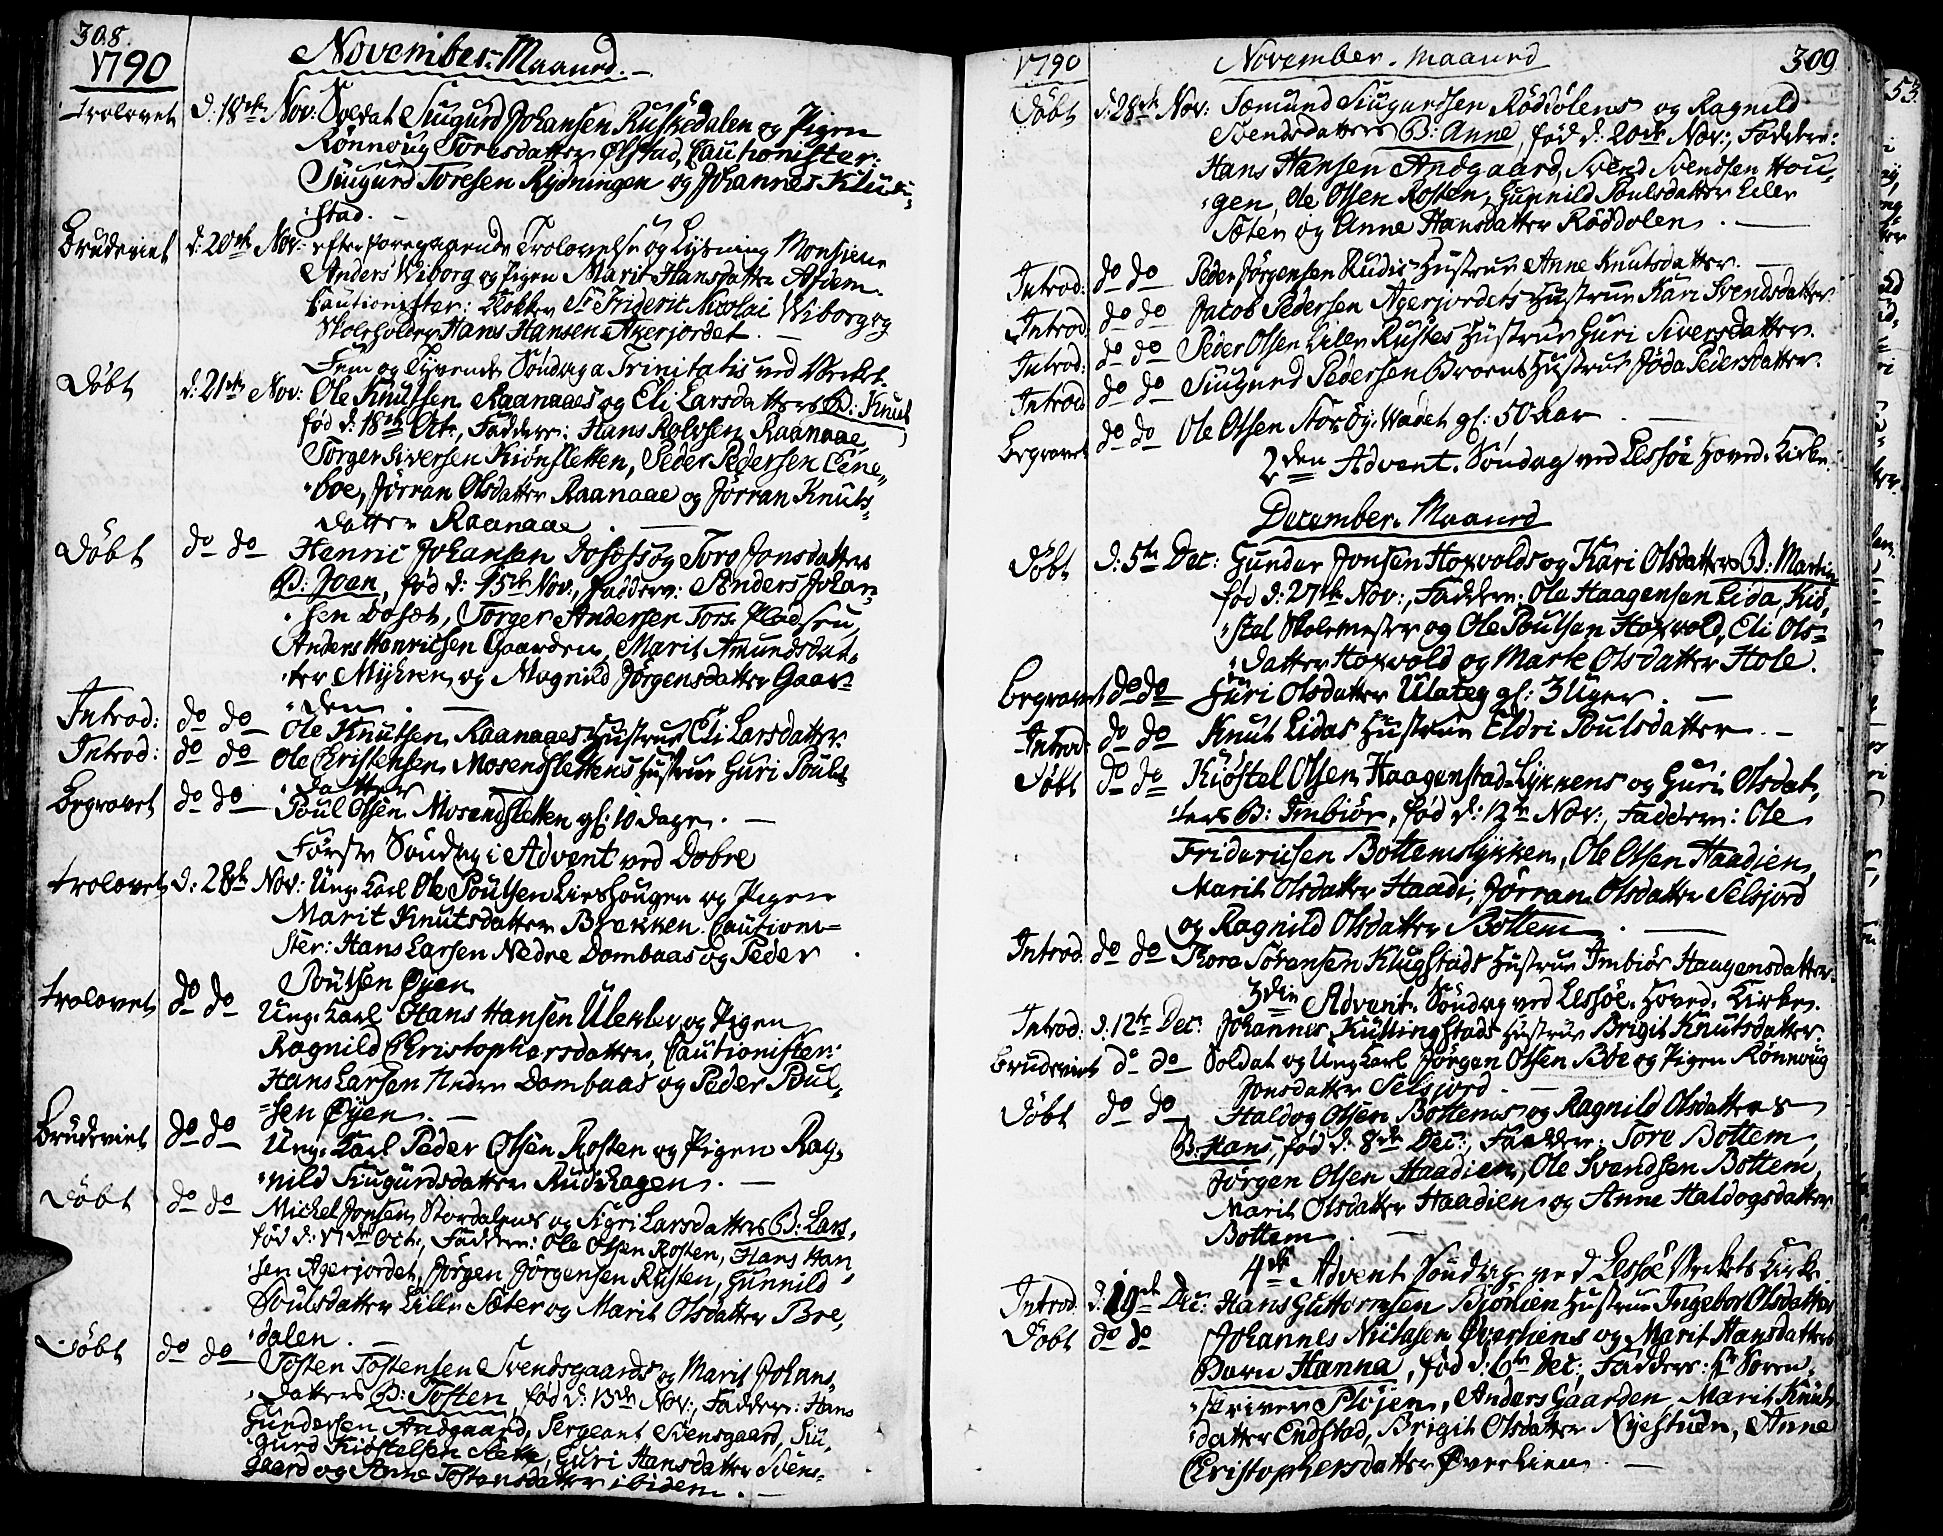 308.
1790
November-Maaned.
Trolovet d: 18de Nov: Soldat Siugurd Johansen Ruskedalen og Pigen
Rønnoug Toresdatter Ølstad, Cautionister:
Siugurd Toresen Rydningen og Johannes Klucki-
stad.
Brudeviet d: 20de Nov: efter foregaaende Trolovelse og Lysning Monsieur
Anders Wiborg og Pigen Marit Hansdatter
Cautionister: Klokker Sr Friderik Nicolai Wiborg og
Skoleholder Hans Hansen Agerjordet.
Fem og Tyvende Søndag a Trinitatis ved Verket
Døbt d: 21de Nov: Ole Knutsen Raanaaes og Eli Larsdatters B: Knut
fød d: 18de Octr, Faddere: Hans Rolvsen Raanaae,
Torger Siversen Kiønsletten, Peder Pedersen Eine-
boe, Jørran Olsdatter Raanaae og Jørran Knuts-
datter Raanaae.
Døbt do do Henric Johansen Dosets og Toro Jonsdatters
B: Joan, fød d: 15de Nov:, Faddere: Anders Johan-
sen Doset, Torger Andersen Tors Pladsen,
Anders Henricsen Gaarden, Marit Amundsdat-
ter Myhren og Magnild Jørgensdatter Gaar-
den.
Introd: do do Ole Knutsen Raanaaes Hustrue Eli Larsdatter.
Introd: do do Ole Christensen Mosendslettens Hustrue Guri Pouls-
datter
Begravet do do Poul Olsen Mosendsletten gl: 10 Dage.
Første Søndag i Advent ved Dovre
Trolovet d: 28de Nov: Ung Karl Ole Poulsen Lieshougen og Pigen
Marit Knutsdatter Brekken. Cautioni-
ster: Hans Larsen Nedre Dombaas og Peder
Poulsen Øyen
Trolovet do do Ung Karl Hans Hansen Ulekler og Pigen
Ragnild Christophersdatter, Cautionister:
Hans Larsen Nedre Dombaas og Peder Poul-
sen Øyen.
Brudeviet do do Ung Karl Peder Olsen Rosten og Pigen Rag-
nild Siugurdsdatter Rudihagen.
Døbt do do Michel Jonsen Stordalens og Sigri Larsdatters B: Lars,
fød d: 17de Oct:, Faddere: Ole Olsen Rosten, Hans Han-
sen Agerjordet, Jørgen Jørgensen Rusten, Gunnild
Poulsdatter Lille Sæter og Marit Olsdatter Bre-
dalen.
Døbt do do Tosten Tostensen Svendsgaards og Marit Johans-
datters B: Tosten, fød d: 13de Nov:, Faddere: Hans
Gundersen Andgaard, Sergeant Svensgaard, Siu-
gurd Kiøstelsen Slette, Guri Hansdatter Svens-
gaard og Anne Tostensdatter ibidem.
1790
November-Maaned
309
Døbt d: 28de Nov: Semund Siugurdsen Røddølens og Ragnild
Svendsdatters B: Anne, fød d: 20de Nov:, Faddere:
Hans Hansen Andgaard, Svend Svendsen Hou-
gen, Ole Olsen Rosten, Gunnild Poulsdatter Lille
Sæter og Anne Hansdatter Røddolen.
Introd: do do Peder Jørgensen Rudis Hustrue Anne Knutsdatter.
Introd do do Jacob Pedersen Agerjordets Hustrue Kari Svendsdatter
Introd: do do Peder Olsen Lille Rustes Hustrue Guri Siversdatter.
Introd do do Siugurd Pedersen Broens Hustrue Jøda Pedersdatter.
Begravet do do Ole Olsen Storøy-Wadet gl: 50 Aar
2den Advent-Søndag ved Lessøe Hoved-Kirke.
December-Maaned
Døbt d: 5te Dec: Gunder Jonsen Hoxvolds og Kari Olsdatters B: Martin
fød d: 27de Nov:, Faddere: Ole Haagensen Lida, Kiø-
stel Skolemester og Ole Poulsen Hoxvold, Eli Ols-
datter Hoxvold og Marte Olsdatter Hole.
Begravet do do Juri Olsdatter Ulateg gl: 3 Uger.
Introd: do do Knut Lidas Hustrue Eldri Poulsdatter.
Døbt do do Kiøstel Olsen Haagenstad-Lykkens og Guri Olsdat-
ters B: Imbiør, fød d: 12te Nov:, Faddere: Ole
Fridericsen Bottemslykken, Ole Olsen Haadien,
Marit Olsdatter Haadi, Jørran Olsdatter Selsjord
og Ragnild Olsdatter Bottem.
Introd. do do Thore Torensen Klugstads Hustrue Imbiør Haagensdatter.
3die Advent-Søndag ved Lessøe-Hoved-Kirke.
Introd: d: 12te Dec: Johannes Kullingstads Hustrue Brigit Knutsdatter.
Brudeviet do do Soldat og Ung Karl Jørgen Olsen Bøe og Pigen Rønnoug
Jonsdatter Selsjord.
Døbt do do Haldog Olsen Bottems og Ragnild Olsdatters
B: Hans, fød d: 8de Dec:, Faddere: Tore Bottem,
Jørgen Olsen Haadien, Ole Svendsen Bottem,
Marit Olsdatter Haadien og Anne Haldogsdatter
Bottem.
4de Advent Søndag ved Lessøe Verkets Kirke
Introd. d: 19de Dec: Hans Guttormsen Bjørlien Hustrue Ingebor Olsdatter
Døbt do do Johannes Niclasen Øverliens og Marit Hansdatters
Barn Hanna, fød d: 6te Dec:, Faddere: Hr Soren-
skriver Pløjen, Anders Gaarden, Marit Knuts-
datter Endstad, Brigit Olsdatter Nyestuen, Anne
Christophersdatter Øverlien.